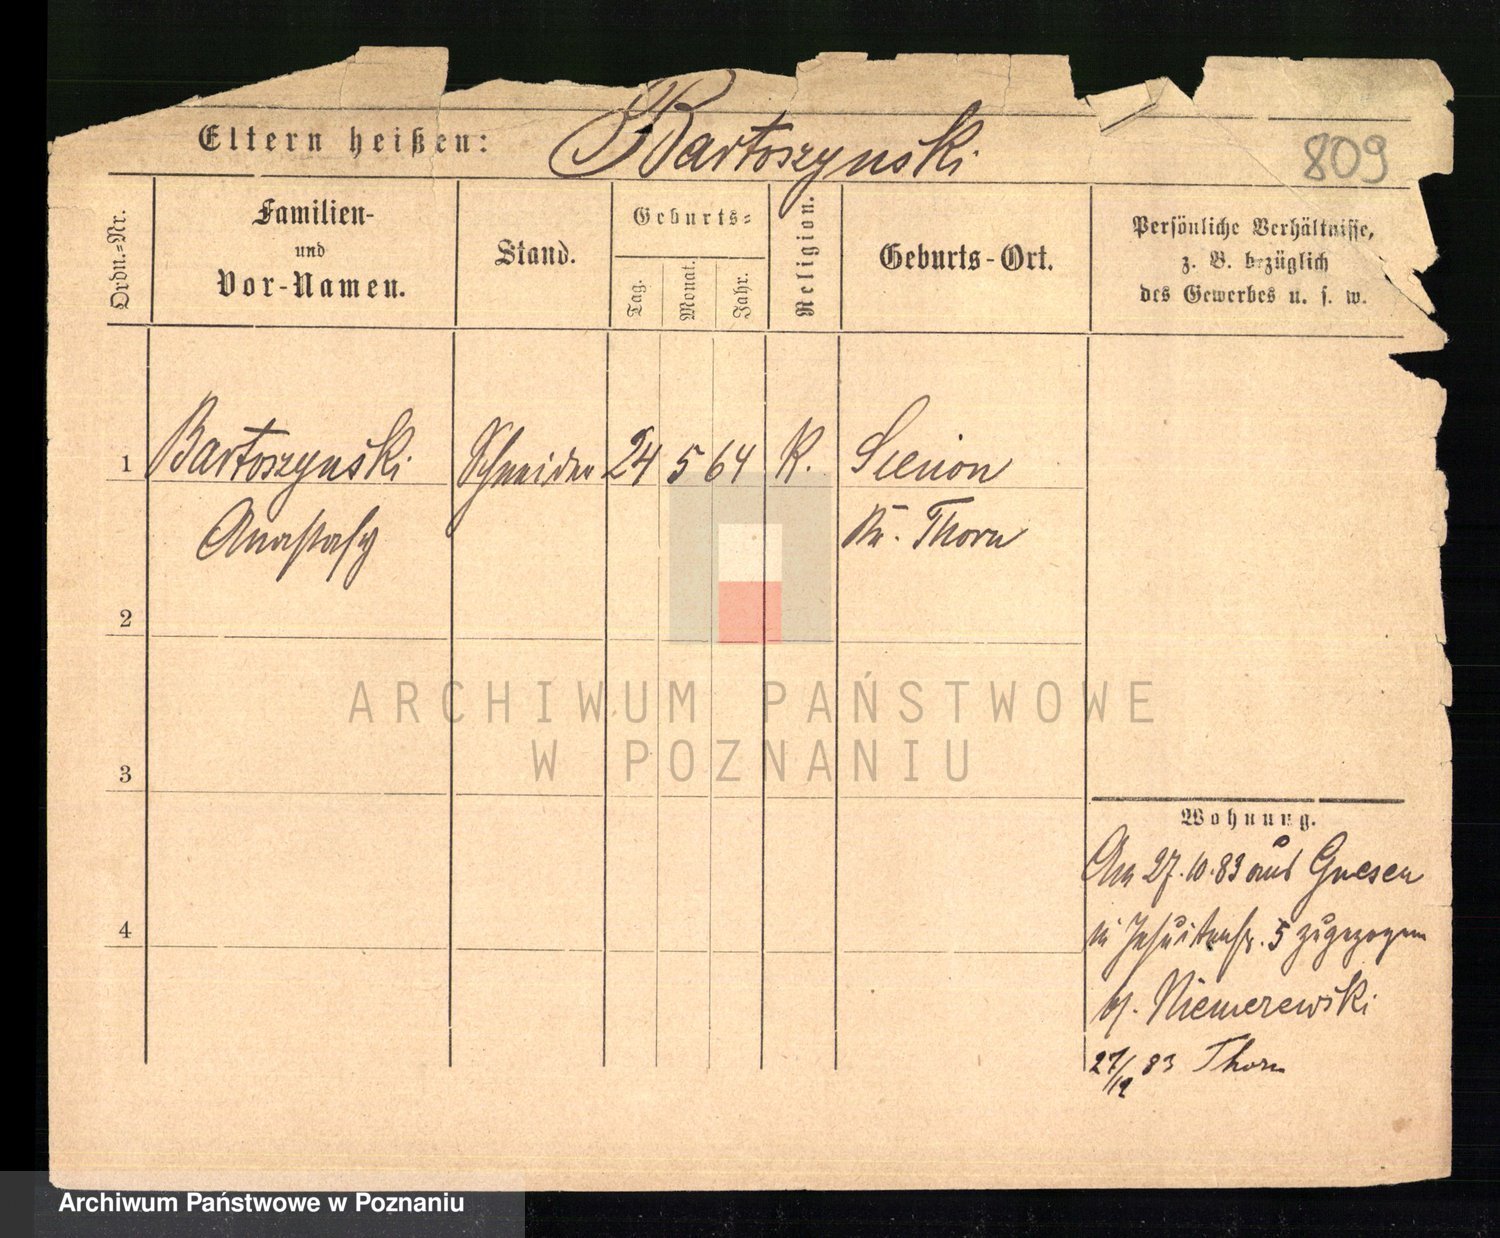 Eltern heißen: Bartoszynski
809
Ordn.-Nr.
Familien-
und
Vor-Namen.
Stand.
Geburts-
Tag.
Monat.
Jahr.
Religion.
Geburts-Ort.
Persönliche Verhältnisse,
z. B. bezüglich
des Gewerbes u. s. w.
1 Bartoszynski Schneider 24 5 64 K.
Anastasy Kr. Thorn
2
3
4
ARCHIWUM PAŃSTWOWE
W POZNANIU
Wohnung.
Am 27.10.83 aus Gnesen
in Jesuitenstr. 5 zugezogen
Niemerewski
27/12 83 Thorn
Archiwum Państwowe w Poznaniu